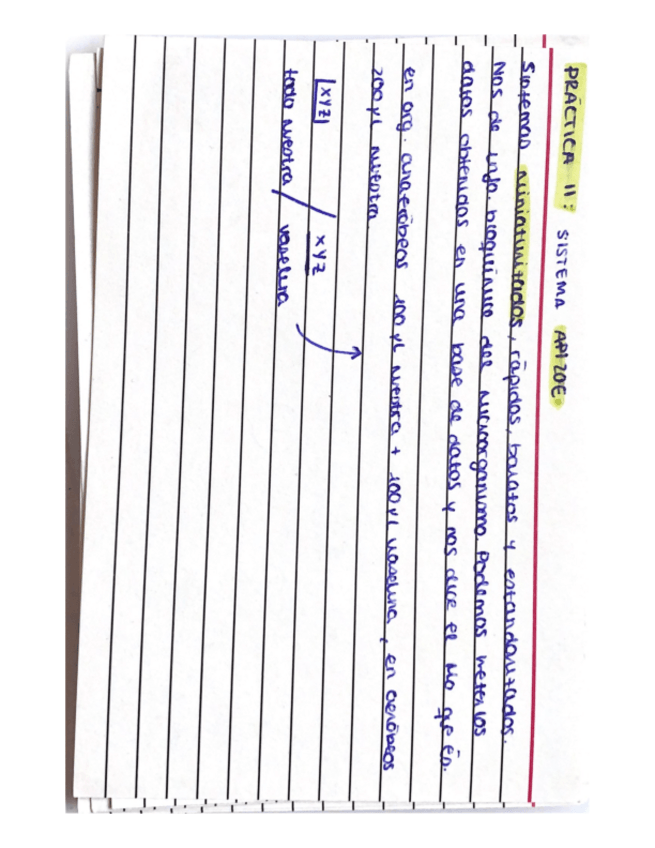 PRÁCTICA 11: SISTEMA API 20E
Sistemas miniaturizados, rápidos, baratos y estandarizados.
Nos da info bioquímica del microorganismo. Podemos meter los
datos obtenidos en una base de datos y nos dice el mo que es.
en org. anaeróbeos 100 μl muestra + 100 μl vaselina, en aeróbeos
200 μl muestra.
|XYZ| XYZ
todo muestra / vaselina